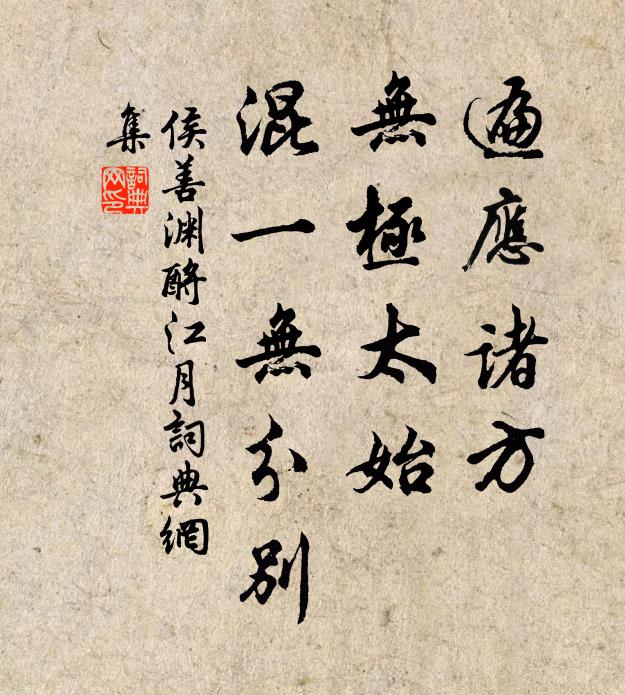 遍應諸方
無極太始
混一無分別
侯善渊酹江月詞典網
集
詞典
网印